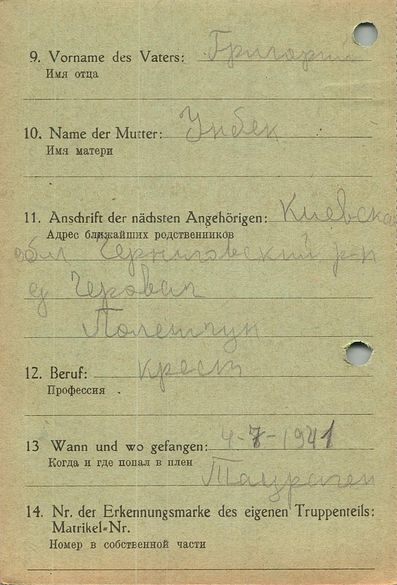 9. Vorname des Vaters: Григорий
Имя отца
10. Name der Mutter: Унбек
Имя матери
11. Anschrift der nächsten Angehörigen: Киевская
Адрес ближайших родственников
обл Черниговский р-н
Полешчук
12. Beruf: крест
Профессия
13 Wann und wo gefangen: 4-7-1941
Когда и где попал в плен
Таураген
14. Nr. der Erkennungsmarke des eigenen Truppenteils:
Matrikel-Nr.
Номер в собственной части